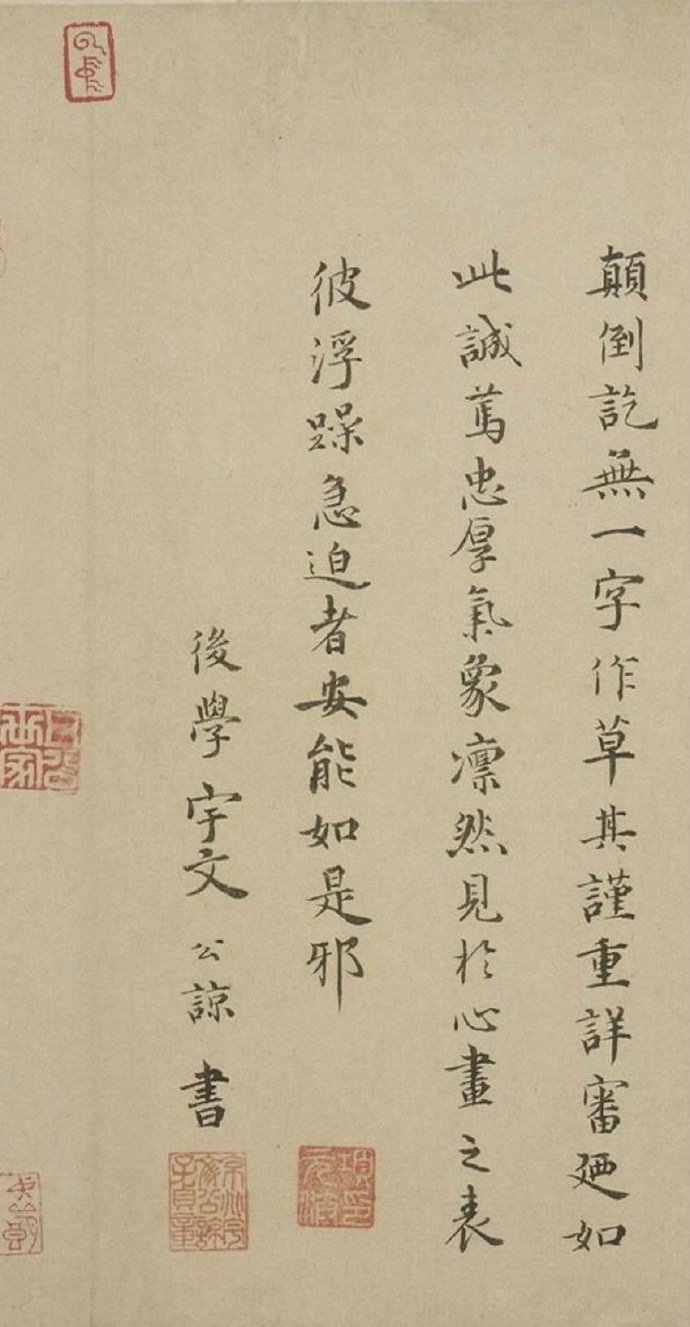 顛倒訖無一字作草其謹重詳審廼如
此誠篤忠厚氣象凛然見於心畫之表
彼浮躁急迫者安能如是邪
後學宇文公諒書